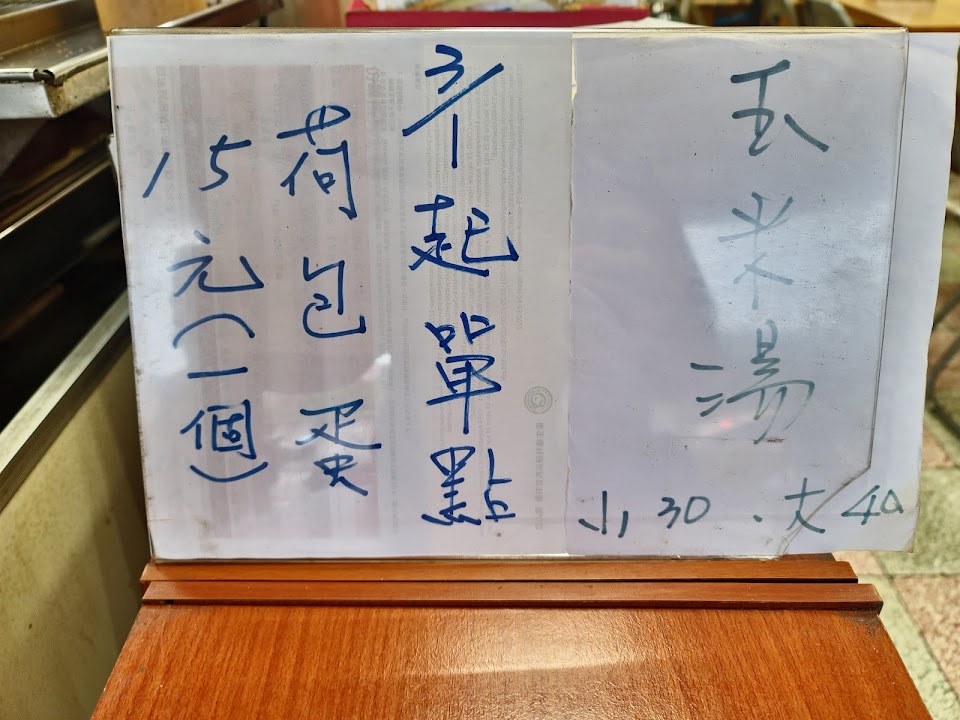 玉米湯
小30、大40
3/1起單點
荷包蛋
15元(一個)